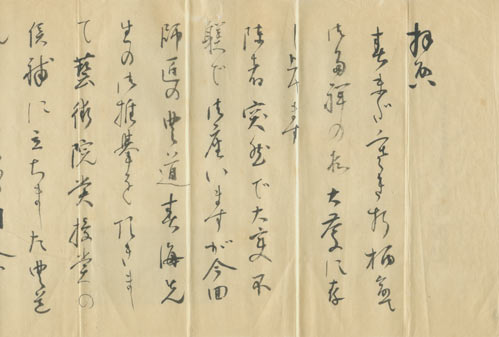 拝啓
春まだ寒き折柄益々
御多祥の趣大慶に存
じ上げます
陳者突然で大変不
躾で御座いますが今回
師匠の豊道春海先
生の御推挙を頂きま
て藝術院賞授賞の
候補に立ちました豊道